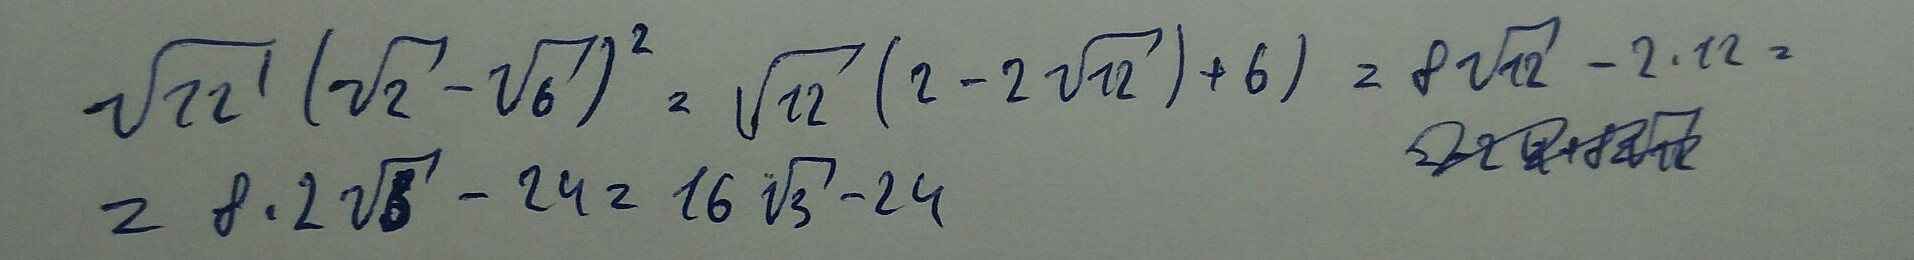 √12 (√2 - √6)² = √12 (2 - 2√12) + 6) = 8√12 - 2·12 =
= 8·2√3 - 24 = 16√3 - 24